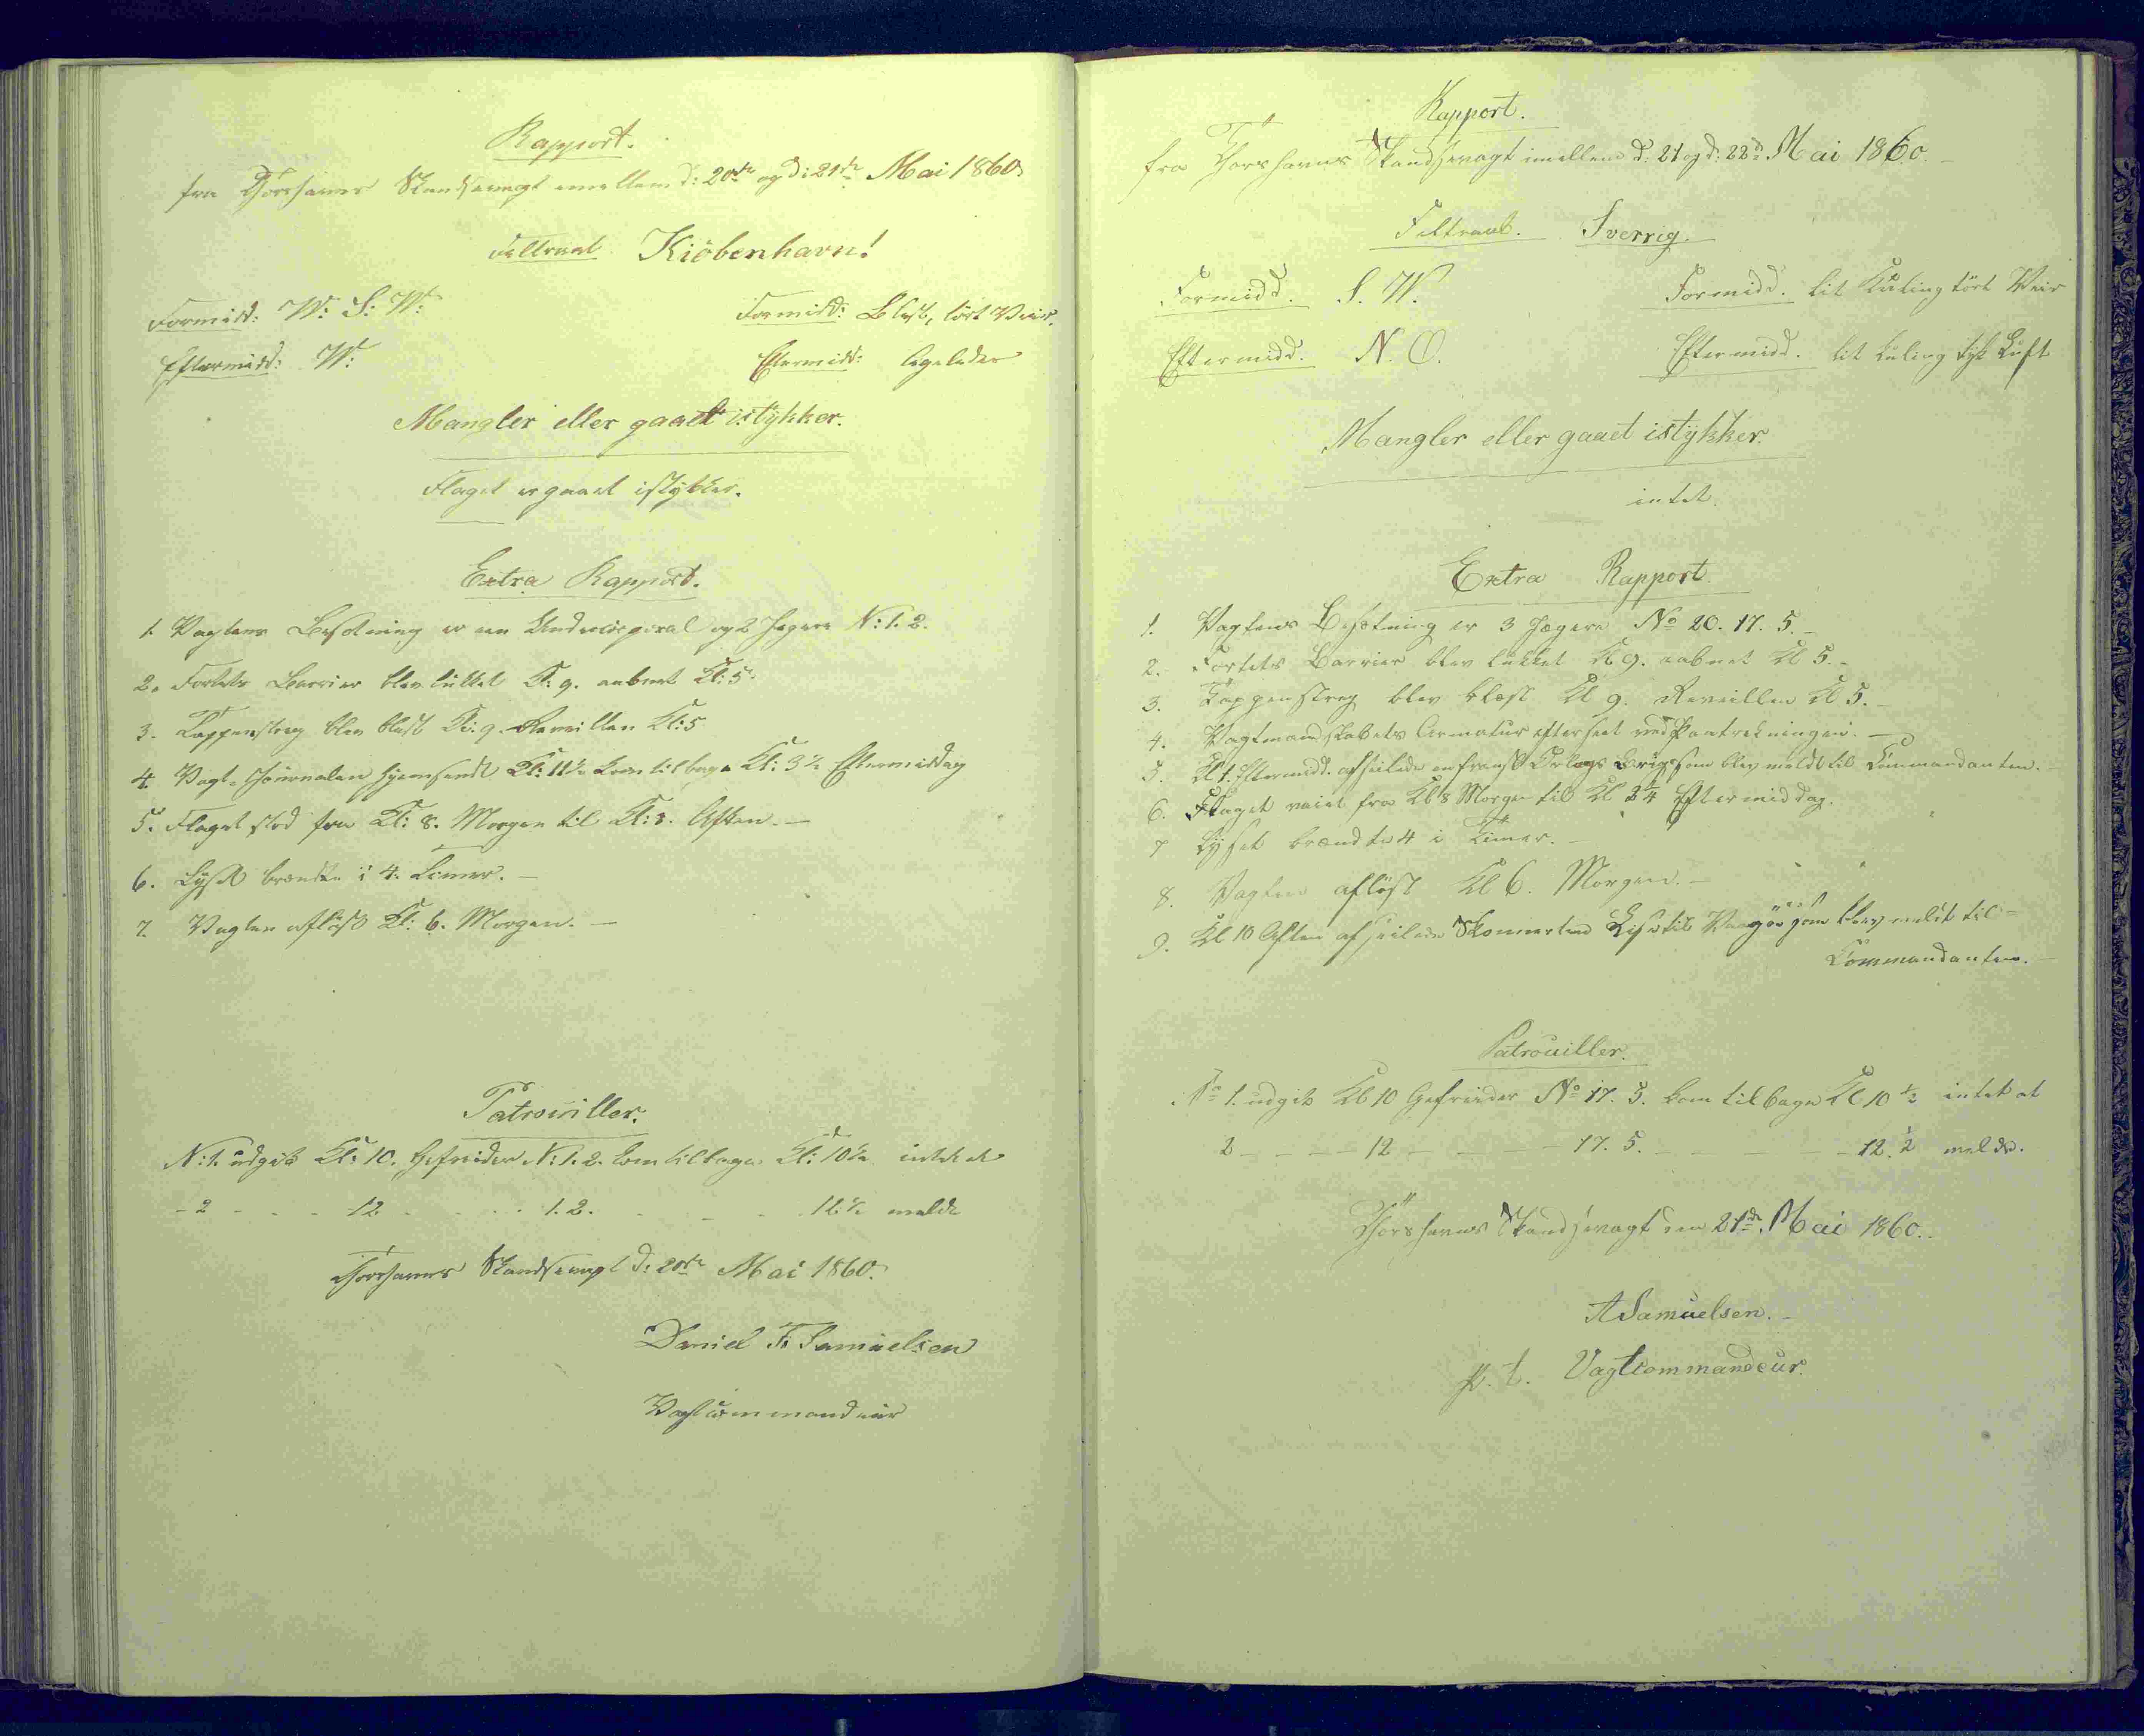 Rapport.
fra Thorshavns Skandsevagt imellem d: 20de og d: 21de Mai 1860
Feltraab Kiöbenhavn!
Formidd: W: S: W: Formidd: Blæst, tört Veir.
Eftermidd: W: Eftermidd: ligeledes
Mangler eller gaaet istÿkker.
Flaget er gaaet istÿkker.
Extra Rapport.
1. Vagtens Besætning er en Undercorporal og 2 Jægere N: 1. 2.
2. Fortets Barrier blev lukket Kl: 9. aabnet Kl: 5.
3. Tappenstreg blev blæst Kl: 9. Reveillen Kl: 5
4. Vagt-Journalen hjemsendt Kl: 11½ kom tilbage Kl: 3½ Eftermiddag
5. Flaget stod fra Kl: 8. Morgen til Kl: 8. Aften. —
6. Lÿset brændte i 4. Timer. —
7. Vagten aflöst Kl: 6. Morgen. —
Patrouiller.
N: 1. udgik Kl: 10. Gefreider N: 1. 2. kom tilbage Kl: 10½ intet at
- 2 - - - 12 - - - 1. 2. - - - 12½ melde
Thorshavns Skandsevagt d: 20de Mai 1860.
Daniel F. Samuelsen
Vagtcommandeur
Rapport.
fra Thorshavns Skandsevagt imellem d: 21 og d: 22d Mai 1860. —
Feltraab. Sverrig.
Formidd. S. W. Formidd. lit Kuling tört Veir
Eftermidd. N. O. Eftermidd. lit Kuling tyk Luft
Mangler eller gaaet istÿkker.
intet.
Extra Rapport
1. Vagtens Besætning er 3 Jægere No 20. 17. 5. —
2. Fortets Barrier blev lukket Kl 9. aabnet Kl 5. —
3. Tappenstreg blev blæst Kl 9. Reveillen Kl 5. —
4. Vagtmandskabets Armatur efterseet ved Paatrækningen. —
5. Kl 1. Eftermidd. afseilede en fransk Orlogs Brig som blev meldt til Commandanten. —
6. Flaget vaiet fra Kl 8 Morgen til Kl 3¼ Eftermiddag.
7 Lÿset brændte 4 i Timer. —
8. Vagten aflöst Kl 6. Morgen. —
9. Kl 10 Aften afseilede Skonnerten til Vaagöe som blev meldt til
Commandanten. —
Patrouiller.
No 1. udgik Kl 10 Gefreider No 17. 5. kom tilbage Kl 10½ intet at
2 - - - - 12 - - - 17. 5. - - - - 12.½ melde.
Thorshavns Skandsevagt den 21de Mai 1860. —
A Samuelsen. —
p. t. Vagtcommandeur.